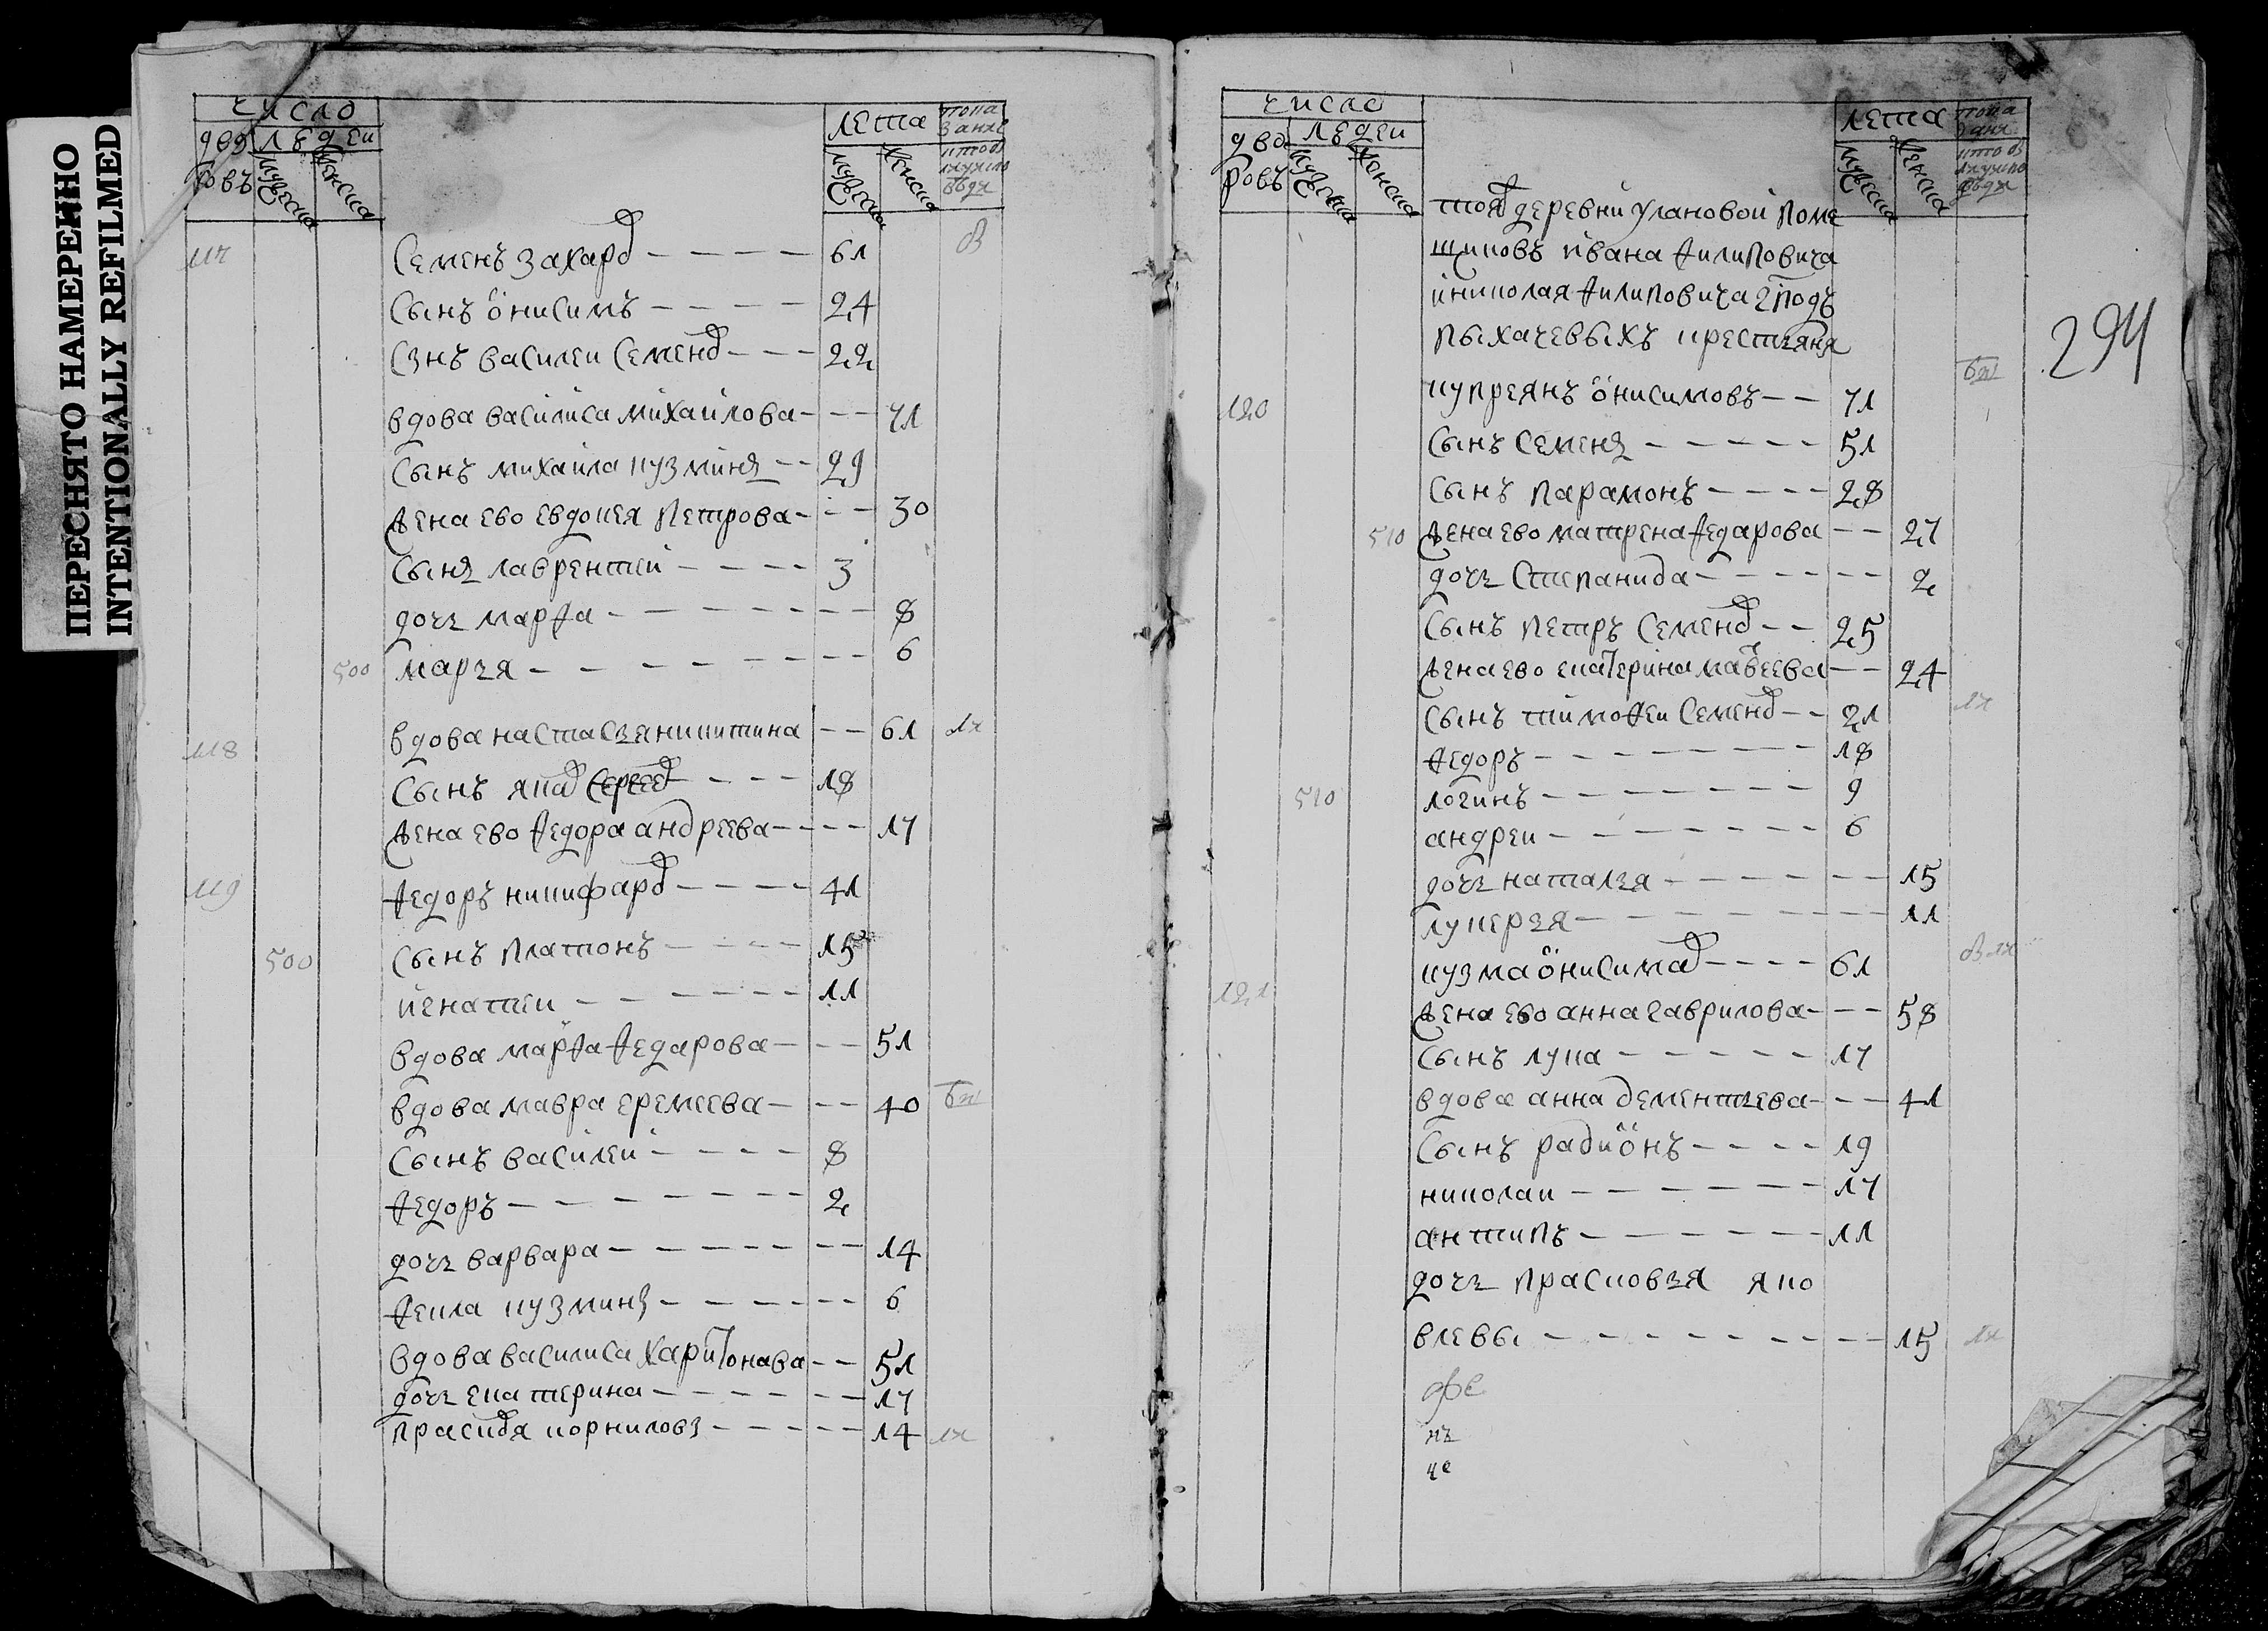 ПЕРЕСНЯТО НАМЕРЕННО
INTENTIONALLY REFILMED
число
дво
ровъ
людеи
мужеска
женска
лета
мужеска
женска
117
Семенъ Захаров 61
Сынъ онисимъ 24
Сынъ василеи Семенов 22
вдова василиса михаилова 71
Сынъ михаила кузминъ 29
жена ево евдокея петрова 30
Сынъ лаврентеи 3
дочь марфа 8
500 марья 6
118 вдова настасья никитина 61
Сынъ яков Сергеев 18
жена ево федора андреева 17
119 федоръ никифаров 41
500 Сынъ платонъ 15
игнатеи 11
вдова марфа федарова 51
вдова мавра еремеева 40
Сынъ василеи 8
федоръ 2
дочь варвара 14
фекла кузмины 6
вдова василиса харитонава 51
дочь екатерина 17
прасковя корниловы 14
число
дво
ровъ
людеи
мужеска
женска
лета
мужеска
женска
тояж деревни улановой поме
щиковъ ивана филиповича
и николая филиповича гподъ
пыхачевыхъ крестьяня
294
120 купреянъ онисимовъ 71
Сынъ Семенъ 51
Сынъ парамонъ 28
510 жена ево матрена федарова 27
дочь Степанида 2
Сынъ петръ Семенов 25
жена ево екатерина матвеева 24
Сынъ тимофеи Семенов 21
федоръ 18
510 логинъ 9
андреи 6
дочь наталья 15
лукерья 11
121 кузма онисимов 61
жена ево анна гаврилова 58
Сынъ лука 17
вдова анна дементьева 41
Сынъ радионъ 19
николаи 17
антипъ 11
дочь прасковья яко
влевы 15